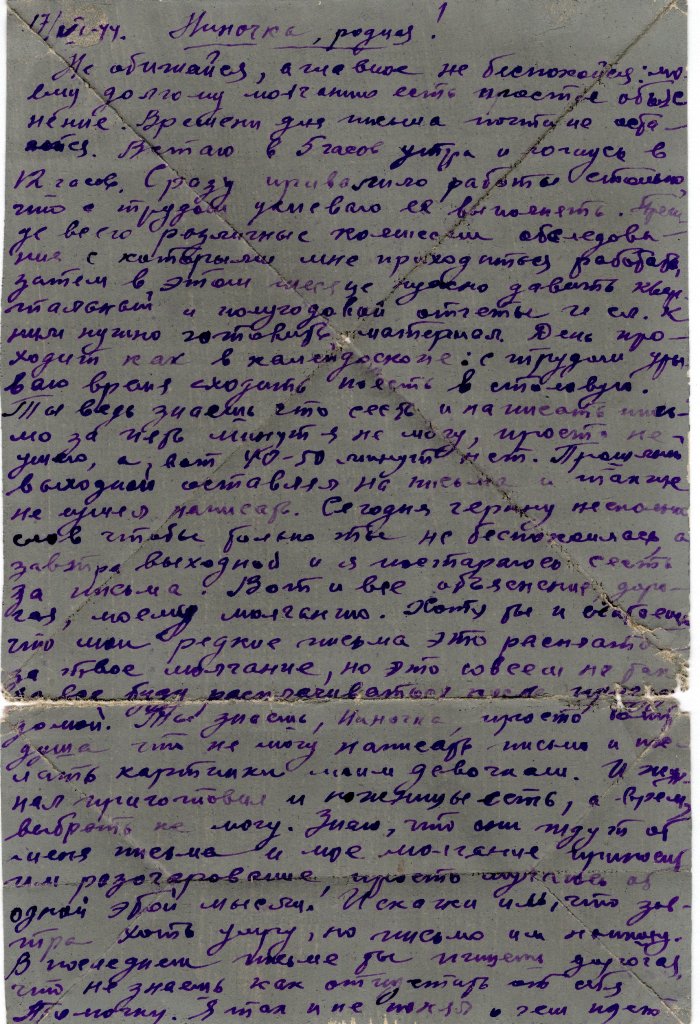 17/VI-44. Ниночка, родная!
Не обижайся, а главное не беспокойся: мо-
ему долгому молчанию есть простое объяс
нение. Времени для письма почти не оста-
ется. Встаю в 5 часов утра и ложусь в
12 часов. Сразу привалило работы столько,
что с трудом успеваю её выполнять. Преж
де всего различные комиссии обследова
ния с которыми мне приходиться работать,
затем в этом месяце нужно давать квар
тальный и полугодовой отчеты и сл. к
ним нужно готовить материал. День про-
ходит как в калейдоскопе: с трудом уры
ваю время сходить поесть в столовую.
Ты ведь знаешь что сесть и написать пись-
мо за пять минут я не могу, просто не
умею, а, вот 40-50 минут нет. Прошлый
выходной оставлял на письма и также
не сумел написать. Сегодня черкну несколько
слов чтобы только ты не беспокоилась а
завтра выходной и я постараюсь сесть
за письма. Вот и все объяснение доро-
гая, моему молчанию. Хотя ты и
что мои редкие письма это расплата
за твое молчание, но это совсем не так
за все буду расплачиваться после
домой. Ты знаешь, Ниночка, просто
душа что не могу написать письмо и
лать картинки моим девочкам. И жур
нал приготовил и ножницы есть, а время
выбрать не могу. Знаю, что они ждут от
меня письма и мое молчание приносит
им разочарование, просто мучаюсь от
одной этой мысли. И скажи им, что зав-
тра хоть умру, но письмо им напишу.
В последнем письме ты пишешь дорогая,
что не знаешь как отпустить от себя
Томочку. Я так и не понял о чем идет